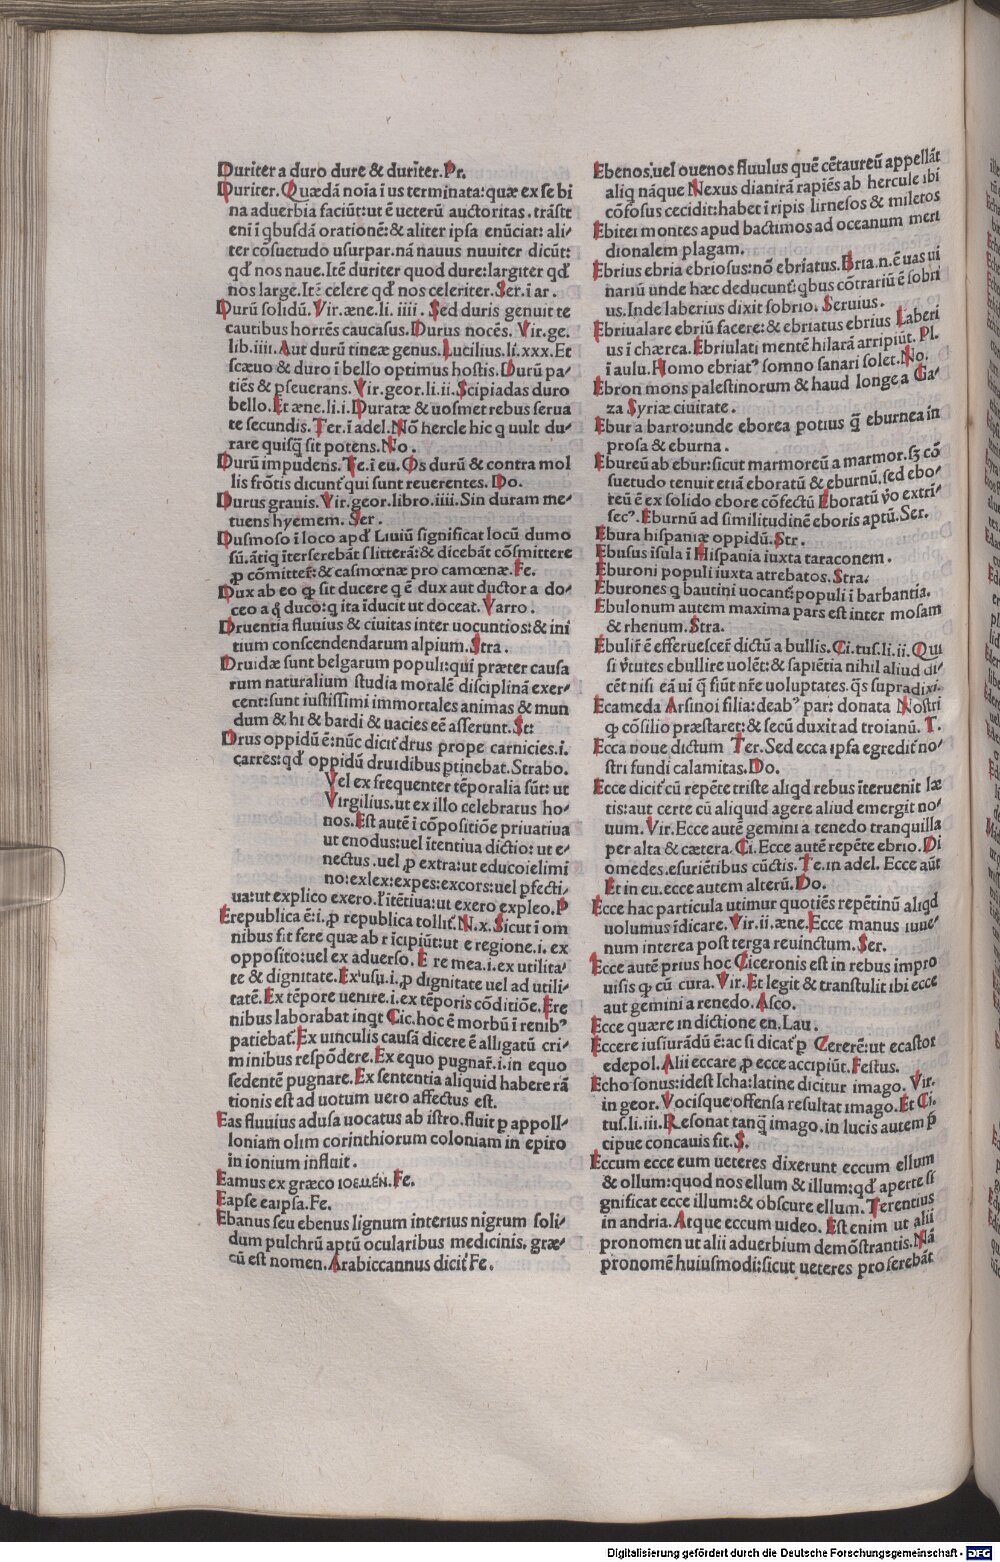 Duriter a duro dure & duriter.Pr.
Duriter. Quædā noīa ī us terminata:quæ ex se bi
na aduerbia faciūt:ut ē ueterū auctoritas. trāsitt
eni ī qbusdā orationē:& aliter ipsa enūciat: ali/
ter cōsuetudo usurpar.nā nauus nauiter dicūt:
qđ nos naue.Itē duriter quod dure:largiter qđ
nos large.Itē celere qđ nos celeriter. Ser.ī ar.
Durū solidū. Vir.æne.li. iiii. Sed duris genuit te
cautibus horrēs caucasus. Durus nocēs. Vir.ge.
lib.iiii.Aut durū tineæ genus.Lucilius.li.xxx.Et
scæuo & duro ī bello optimus hostis. Durū pa/
tiēs & pseuerans. Vir.geor.li.ii.Scipiadas duro
bello.Et æne.li.i.Duratæ & uosmet rebus serua
te secundis. Ter.ī adel.Nō hercle hic q uult du/
rare quisq̄ sit potens.No.
Durū impudens.Te.ī eu.Os durū & contra mol
lis frōtis dicunt' qui sunt reuerentes. Do.
Durus grauis.Vir.geor.libro.iiii.Sin duram me/
tuens hyemem. Ser.
Dusmoso ī loco apđ Liuiū significat locū dumo
sū.ātiq īterserebāt s litterā:& dicebāt cōsmittere
p cōmitter̄:& casmœnæ pro camœnæ.Fe.
Dux ab eo qp sit ducere q ē dux aut ductor a do/
ceo a q̄ duco:q ita īducit ut doceat. Varro.
Druentia fluuius & ciuitas inter uocuntios:& ini
tium conscendendarum alpium.Stra.
Druidæ sunt belgarum populi:qui præter causa
rum naturalium studia moralē disciplinā exer/
cent:sunt iustissimi immortales animas & mun
dum & hi & bardi & uacies eē asserunt.St:
Drus oppidū ē:nūc dicit' drus prope carnicies.i.
carres:qđ oppidū druidibus ptinebat.Strabo.
Vel ex frequenter tēporalia sūt: ut
Virgilius.ut ex illo celebratus ho/
nos.Est autē ī cōpositiōe priuatiua
ut enodus:uel ītentiua dictio: ut e/
nectus.uel p extra:ut educoielimi
no:exlex:expes:excors:uel pfecti/
ua:ut explico exero.l'ītētiua:ut exero expleo.P
Erepublica ē:i.p republica tollit'.N.x.Sicut ī om
nibus fit fere quæ ab r īcipiūt:ut e regione.i. ex
opposito:uel ex aduerso. E re mea.i.ex utilita/
te & dignitate.Ex'usu.i.p dignitate uel ad utili/
tatē.Ex tēpore uenire.i.ex tēporis cōditiōe.Ere
nibus laborabat inqt Cic.hoc ē morbū ī renib'
patiebat'.Ex uinculis causā dicere ē alligatū cri/
minibus respōdere.Ex equo pugnar̄.i.in equo
sedentē pugnare.Ex sententia aliquid habere rā
tionis est ad uotum uero affectus est.
Eas fluuius adusa uocatus ab istro.fluit p appoll/
loniam olim corinthiorum coloniam in epiro
in ionium influit.
Eamus ex græco ιοεμεν.Fe.
Eapse eaipsa.Fe.
Ebanus seu ebenus lignum interius nigrum soli/
dum pulchrū aptū ocularibus medicinis. græ/
cū est nomen.Arabiccannus dicit' Fe.
Ebenos.uel ouenos fluulus quē cētaureū appellāt
aliq nāque Nexus dianirā rapiēs ab hercule ibi
cōfosus cecidit:habet ī ripis lirnesos & miletos
Ebitei montes apud bactimos ad oceanum meri
dionalem plagam.
Ebrius ebria ebriosus:nō ebriatus. Bria.n.ē uas ui
nariū unde hæc deducunt':qbus cōtrariū ē sobri
us.Inde laberius dixit sobrio. Seruius.
Ebriualare ebriū facere:& ebriatus ebrius Laberi
us ī chærea.Ebriulati mentē hilarā arripiūt. Pl.
ī aulu. Homo ebriat' somno sanari solet.No.
Ebron mons palestinorum & haud longe a Ga/
za Syriæ ciuitate.
Ebur a barro:unde eborea potius q̄ eburnea in
prosa & eburna.
Ebureū ab ebur:sicut marmoreū a marmor.sʒ cō
suetudo tenuit etiā eboratū & eburnū.sed ebo/
reū ē ex solido ebore cōfectū Eboratū ỹo extrī/
sec'.Eburnū ad similitudinē eboris aptū.Ser.
Ebura hispaniæ oppidū.Str.
Ebusus īsula ī Hispania iuxta taraconem.
Eburoni populi iuxta atrebatos.Stra.
Eburones q bautini uocant':populi ī barbantia.
Ebulonum autem maxima pars est inter mosam
& rhenum.Stra.
Ebulir̄ ē efferuescer̄ dictū a bullis.Ci.tus.li.ii.Qui
si v̄tutes ebullire uolēt:& sapiētia nihil aliud di/
cēt nisi eā uī q̄ fiūt nr̄e uoluptates.q̄s supradixi.
Ecameda Arsinoi filia:deab' par: donata Nostri
qp cōsilio præstaret:& secū duxit ad troianū. T.
Ecca noue dictum Ter.Sed ecca ipsa egredit' no/
stri fundi calamitas.Do.
Ecce dicit' cū repēte triste aliqd rebus īteruenit læ
tis:aut certe cū aliquid agere aliud emergit no/
uum.Vir.Ecce autē gemini a tenedo tranquilla
per alta & cætera.Ci.Ecce autē repēte ebrio.Di
omedes.esuriētibus cūctis.Te.in adel. Ecce aūt
Et in eu.ecce autem alterū.Do.
Ecce hac particula utimur quotiēs repētinū aliqd
uolumus īdicare. Vir.ii.æne.Ecce manus iuue/
num interea post terga reuinctum.Ser.
Ecce autē prius hoc Ciceronis est in rebus impro
uisis qp cū cura. Vir.Et legit & transtulit ibi ecce
aut gemini a renedo.Asco.
Ecce quære in dictione en.Lau.
Eccere iusiurādū ē:ac si dicat' p Cererē:ut ecastor
edepol.Alii eccare p ecce accipiūt.Festus.
Echo sonus:idest Icha:latine dicitur imago. Vir.
in geor.Vocisque offensa resultat imago.Et Ci.
tus.li.iii.Resonat tanq̄ imago.in lucis autem p̄
cipue concauis fit.S.
Eccum ecce eum ueteres dixerunt eccum ellum
& ollum:quod nos ellum & illum:qđ aperte si
gnificat ecce illum:& obscure ellum.Terentius
in andria.Atque eccum uideo. Est enim ut alii
pronomen ut alii aduerbium demōstrantis.Nā
pronomē huiusmodi:sicut ueteres proferebāt
Digitalisierung gefördert durch die Deutsche Forschungsgemeinschaft - DFG